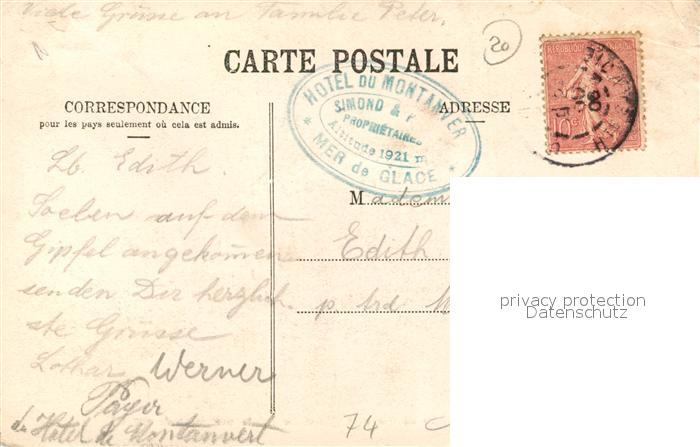 Viele Grüsse an Familie Peter.
20
CARTE POSTALE
CORRESPONDANCE
pour les pays seulement où cela est admis.
ADRESSE
HOTEL DU MONTANVER
SIMOND &
PROPRIÉTAIRES
Altitude 1921 m
MER de GLACE
Lb. Edith.
Soeben auf dem
Gipfel angekommen
senden Dir herzlich-
ste Grüsse
Lothar Werner
Hotel de Montanvert
Madem
Edith
74
privacy protection
Datenschutz